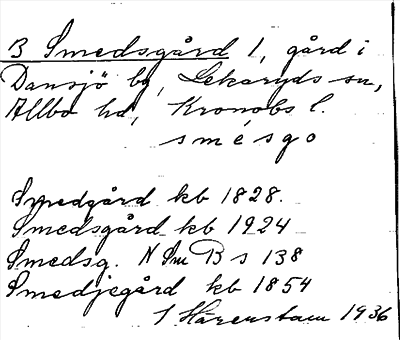 B Smedsgård 1, gård i
Dansjö by, Lekaryds sn,
Allbo hd, Kronobs l.
smésgo
Smedgård kb 1828.
Smedsgård kb 1924
Smedsg. N Sm B s 138
Smedjegård kb 1854
I Hårenstam 1936